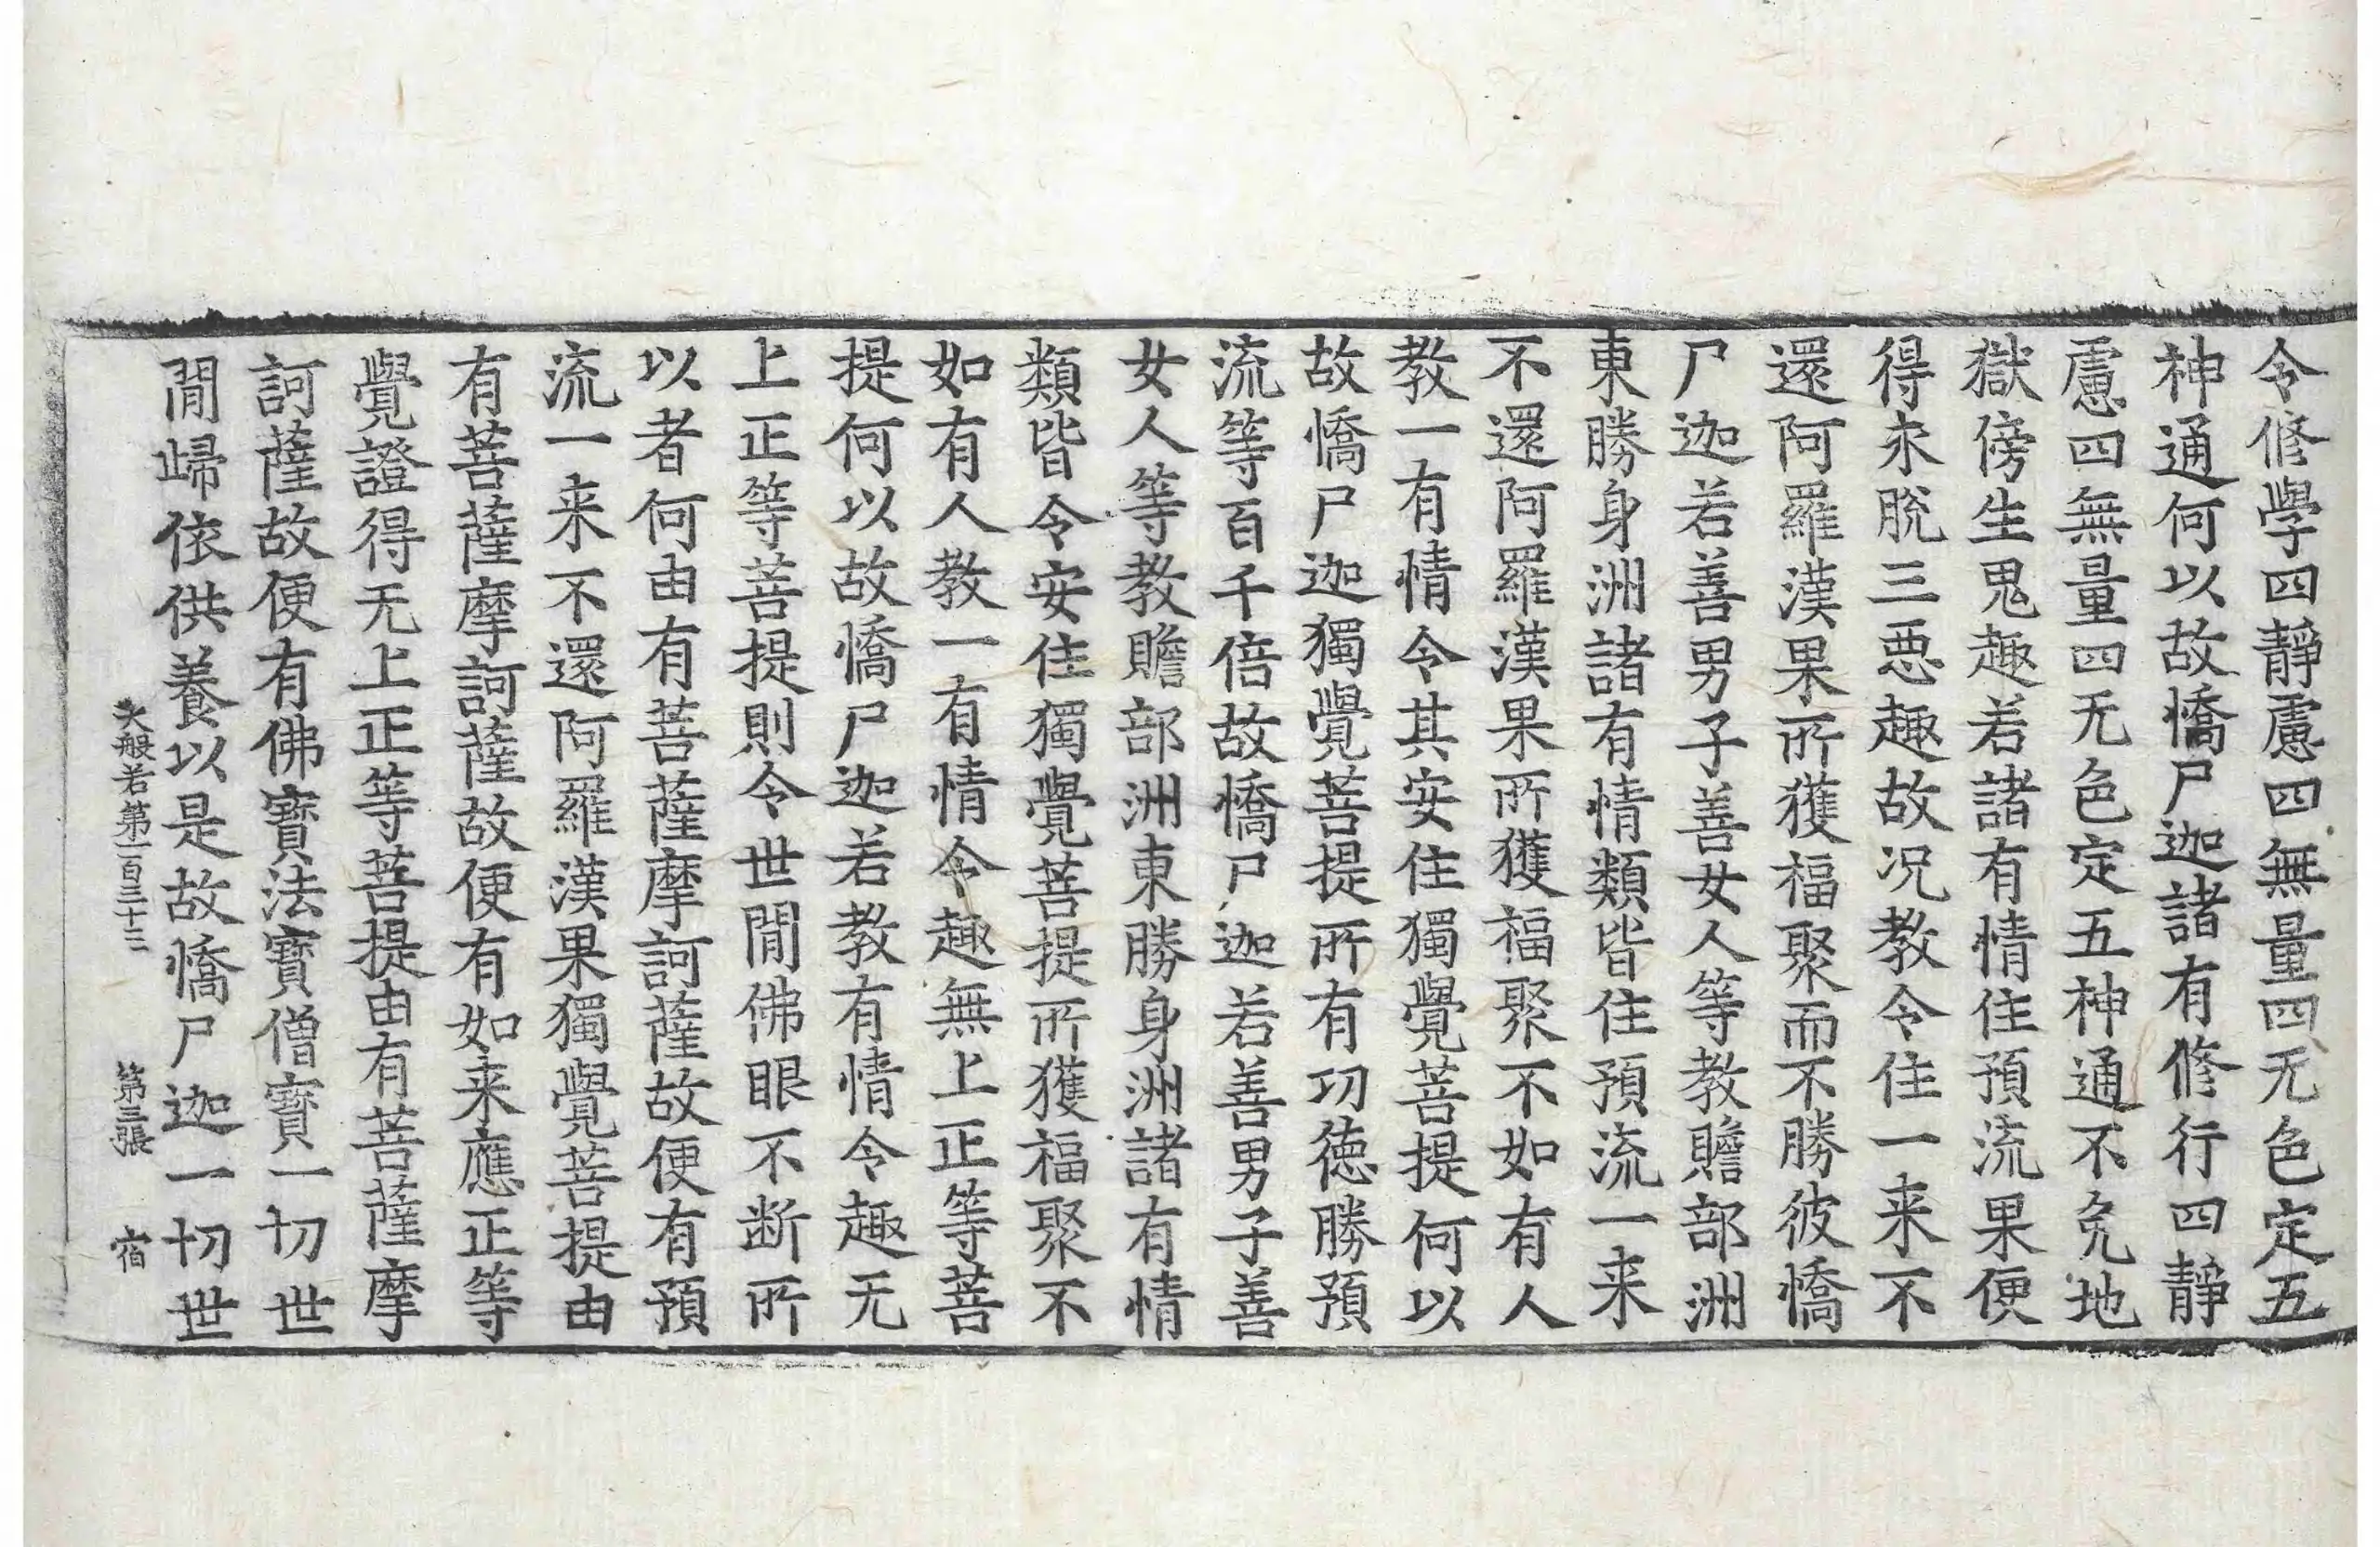 令修學四靜慮四無量四无色定五
神通何以故憍尸迦諸有修行四靜
慮四無量四无色定五神通不免地
獄傍生鬼趣若諸有情住預流果便
得永脫三惡趣故况教令住一来不
還阿羅漢果所獲福聚而不勝彼憍
尸迦若善男子善女人等教贍部洲
東勝身洲諸有情類皆住預流一来
不還阿羅漢果所獲福聚不如有人
教一有情令其安住獨覺菩提何以
故憍尸迦獨覺菩提所有功德勝預
流等百千倍故憍尸迦若善男子善
女人等教贍部洲東勝身洲諸有情
類皆令安住獨覺菩提所獲福聚不
如有人教一有情令趣無上正等菩
提何以故憍尸迦若教有情令趣无
上正等菩提則令世閒佛眼不断所
以者何由有菩薩摩訶薩故便有預
流一来不還阿羅漢果獨覺菩提由
有菩薩摩訶薩故便有如来應正等
覺證得无上正等菩提由有菩薩摩
訶薩故便有佛寶法寶僧寶一切世
閒歸依供養以是故憍尸迦一切世
大般若第一百三十三 第三張 宿